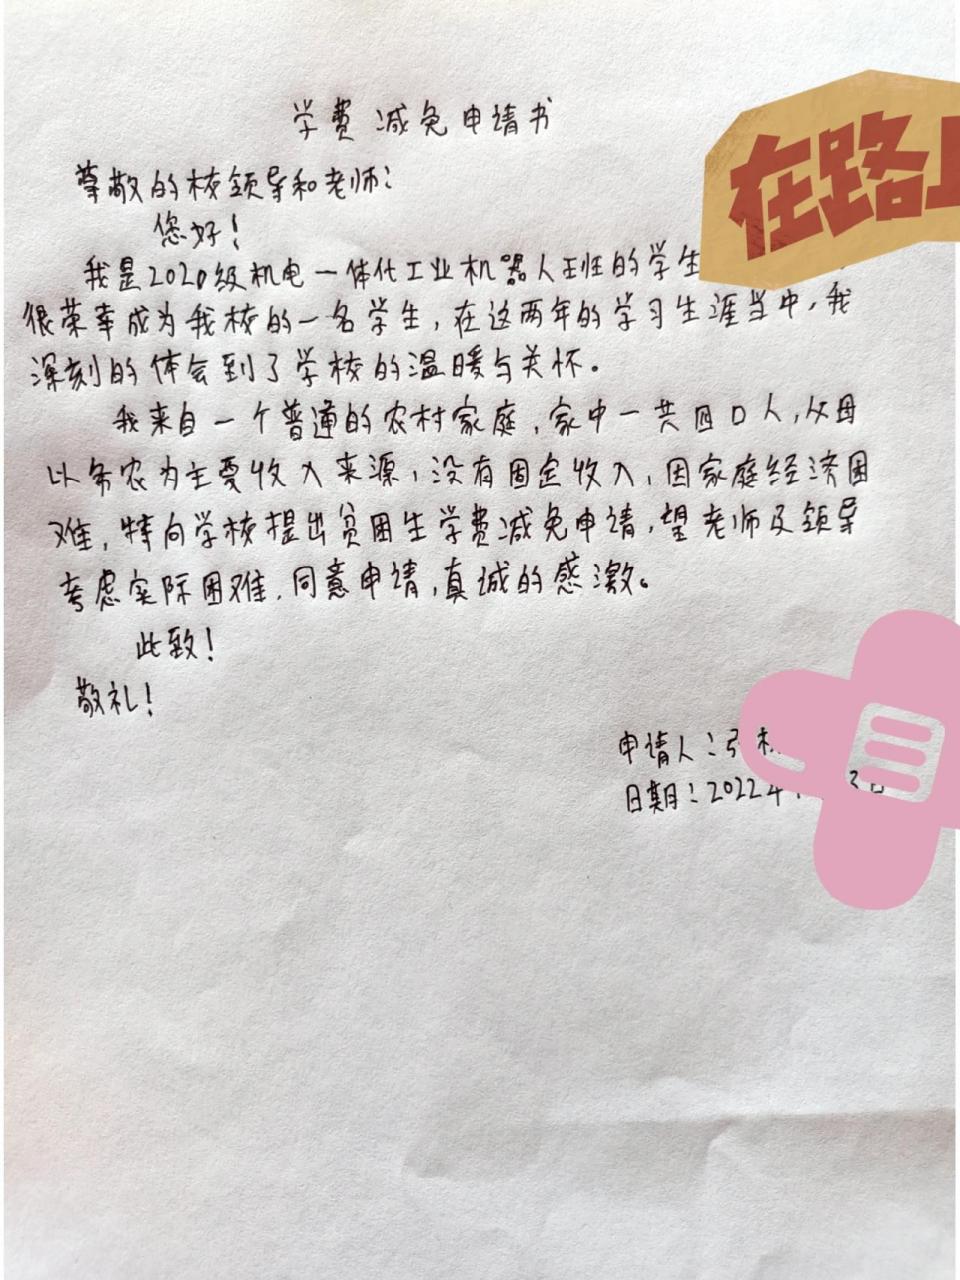 学费减免申请书
尊敬的校领导和老师：
您好！
我是2020级机电一体化工业机器人班的学生
很荣幸成为我校的一名学生，在这两年的学习生涯当中，我
深刻的体会到了学校的温暖与关怀。
我来自一个普通的农村家庭，家中一共四口人，父母
以务农为主要收入来源，没有固定收入，因家庭经济困
难，特向学校提出贫困生学费减免申请，望老师及领导
考虑实际困难，同意申请，真诚的感激。
此致！
敬礼！
申请人：张
日期：2022年
在路上